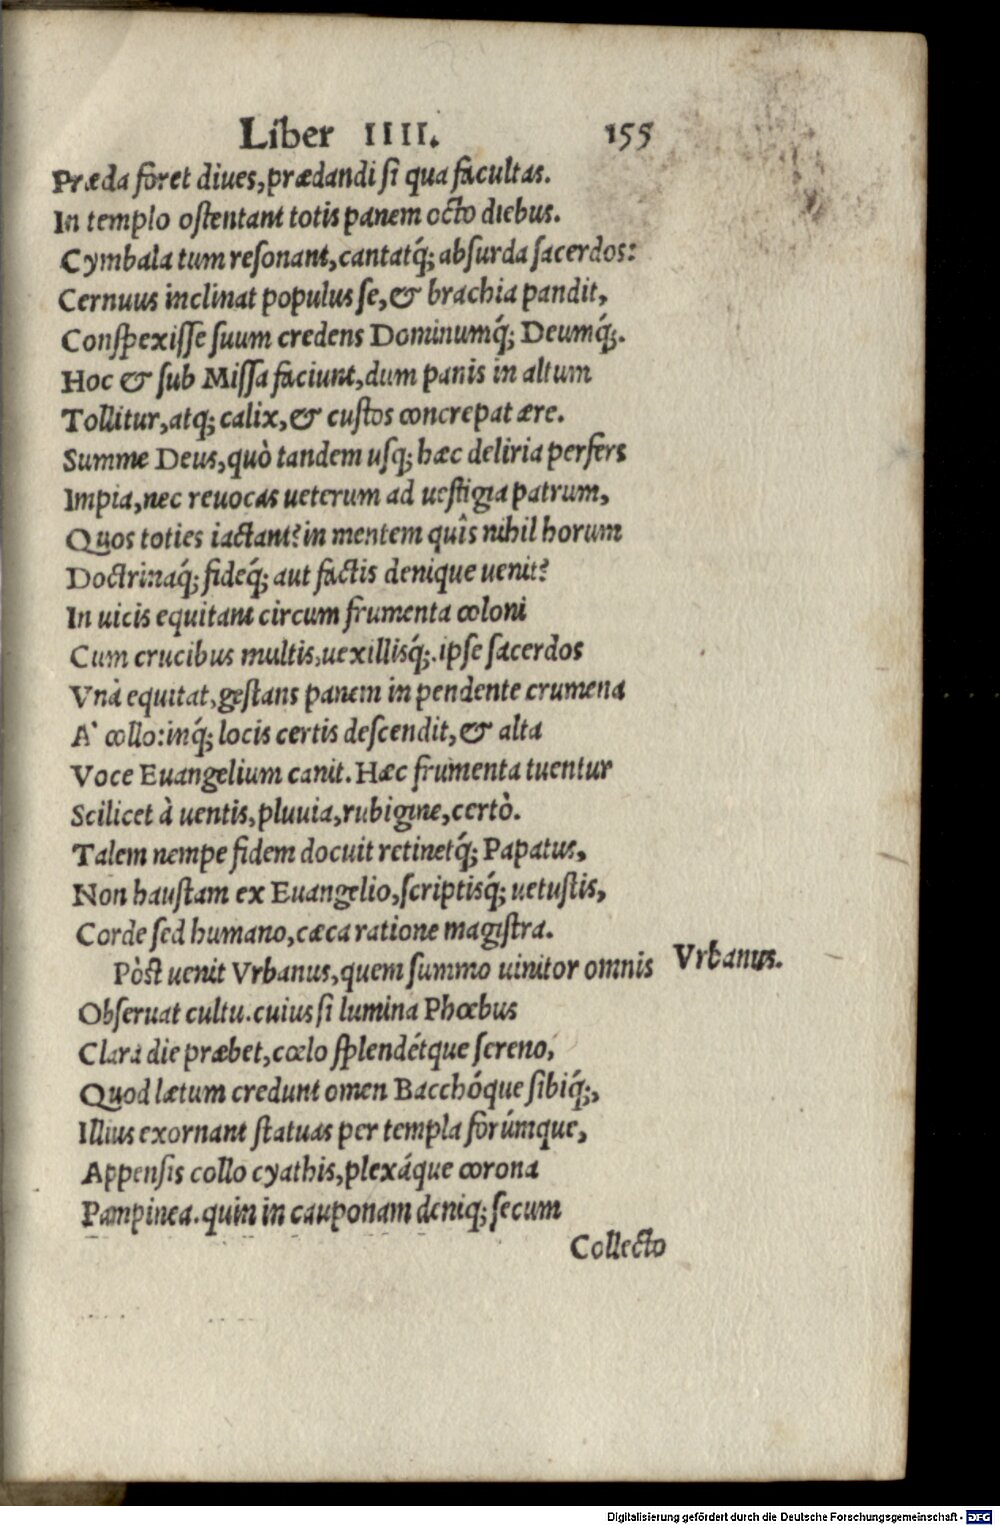 Liber IIII. 155
Præda foret diues, prædandi si qua facultas.
In templo ostentant totis panem octo diebus.
Cymbala tum resonant, cantatq́; absurda sacerdos:
Cernuus inclinat populus se, & brachia pandit,
Conspexisse suum credens Dominumq́; Deumq́;.
Hoc & sub Missa faciunt, dum panis in altum
Tollitur, atq; calix, & custos concrepat ære.
Summe Deus, quò tandem usq; hæc deliria perfers
Impia, nec reuocas ueterum ad uestigia patrum,
Quos toties iactant? in mentem quîs nihil horum
Doctrinaq́; fideq́; aut factis denique uenit?
In uicis equitant circum frumenta coloni
Cum crucibus multis, uexillisq́;. ipse sacerdos
Vnà equitat, gestans panem in pendente crumena
A' collo: inq́; locis certis descendit, & alta
Voce Euangelium canit. Hæc frumenta tuentur
Scilicet à uentis, pluuia, rubigine, certò.
Talem nempe fidem docuit retinetq́; Papatus,
Non haustam ex Euangelio, scriptisq́; uetustis,
Corde sed humano, cæca ratione magistra.
Pòst uenit Vrbanus, quem summo uinitor omnis
Vrbanus.
Obseruat cultu. cuius si lumina Phœbus
Clara die præbet, cœlo splendétque sereno,
Quod lætum credunt omen Bacchóque sibiq́;,
Illius exornant statuas per templa forúmque,
Appensis collo cyathis, plexáque corona
Pampinea. quin in cauponam deniq; secum
Collecto
Digitalisierung gefördert durch die Deutsche Forschungsgemeinschaft - DFG